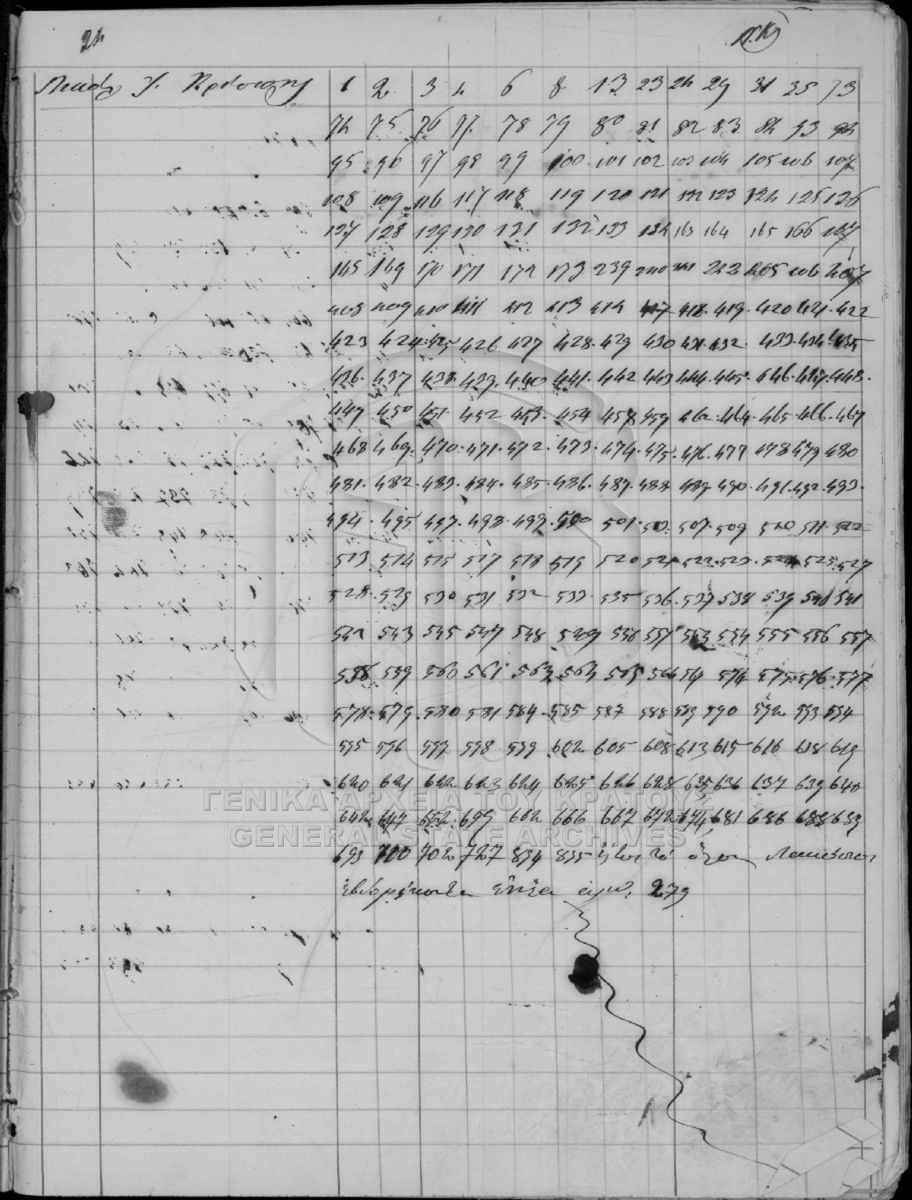 24
1 2 3 4 6 8 13 23 24 29 31 35 73
74 75 76 77 78 79 80 81 82 83 84 93 94
95 96 97 98 99 100 101 102 103 104 105 106 107
108 109 116 117 118 119 120 121 122 123 124 125 126
127 128 129 130 131 132 133 134 163 164 165 166 167
168 169 170 171 172 173 239 240 241 242 405 406 407
408 409 410 411 412 413 414 417 418 419 420 421 422
423 424 425 426 427 428 429 430 431 432 433 434 435
436 437 438 439 440 441 442 443 444 445 446 447 448
449 450 451 452 453 454 458 459 462 464 465 466 467
468 469 470 471 472 473 474 475 476 477 478 479 480
481 482 483 484 485 486 487 488 489 490 491 492 493
494 495 497 498 499 500 501 507 509 510 511 512
513 514 515 517 518 519 520 521 522 523 524 525 527
528 529 530 531 532 533 535 536 537 538 539 540 541
542 543 545 547 548 549 551 553 554 555 556 557
558 559 560 561 563 564 565 566 574 575 576 577
578 579 580 581 584 585 587 588 589 590 592 593 594
595 596 597 598 599 602 605 608 613 615 616 618 619
620 621 622 623 624 625 626 628 635 636 637 639 640
642 647 652 659 662 666 667 672 674 681 686 688 689
ΓΕΝΙΚΑ ΑΡΧΕΙΑ ΤΟΥ ΚΡΑΤΟΥΣ
GENERAL STATE ARCHIVES
693 700 702 727 834 835 ἤτοι τὸ ὅλον Διακόσια
ἑβδομήκοντα ἐννέα ἀριθ. 279